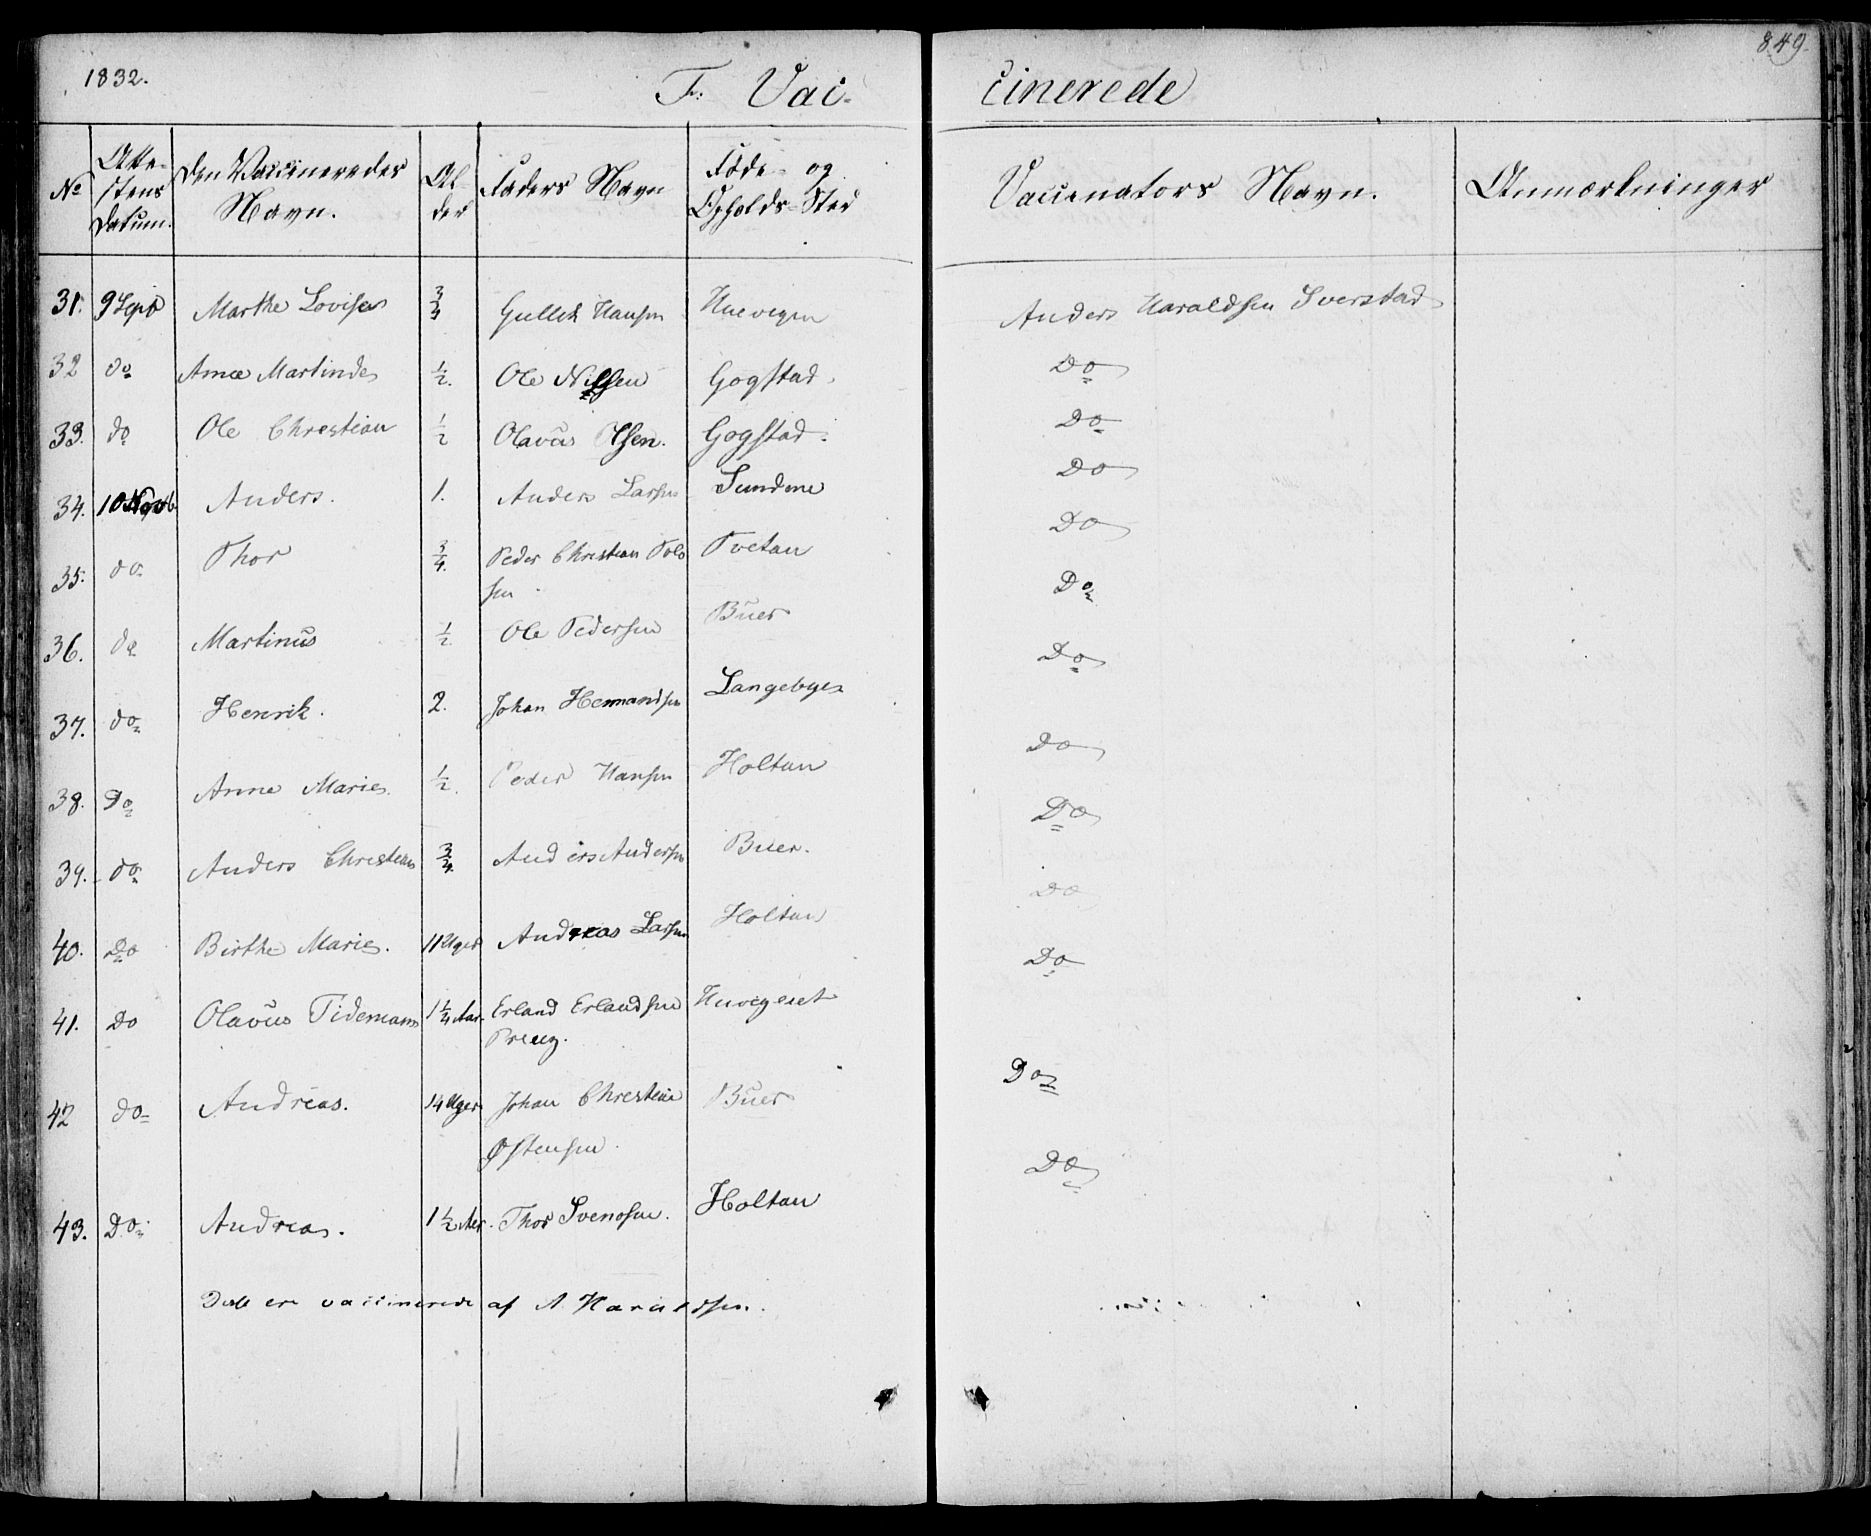 1832.
849.
F. Vac-
cinerede
No
Atte-
stens
Datum.
Den Vaccineredes
Navn.
Al-
der
Faders Navn
Føde- og
Opholds-Sted
Vaccinators Navn.
Anmærkninger
31. 9 Sept Marthe Lovise 3/4 Gullik Hansen Anders Haraldsen Sverstad
32 do Anne Martinde 1/2. Ole Nilsen Gogstad. Do
33. do Ole Christian 1/2 Olavus Olsen. Gogstad. Do
34. 10 Anders. 1. Anders Larsen Sundene Do
35. do Thor 3/4. Peder Christian Tols
sen Tvetan Do
36. do Martinus 1/2. Ole Pedersen Buer Do
37. do Henrik. 2. Johan Hermandsen Do
38. Do Anne Marie. 1/2. Peder Hansen Holtan Do
39. do Anders Christian 3/4 Anders Andersen Buer. Do
40. Do Birthe Marie. 11 Uger Andreas Larsen Holtan Do
41. Do Olavus Tidemann 1 1/4 Aar. Erland Erlandsen
Preuz. Do
42 do Andreas. 14 Uger Johan Christian
Østensen. Buer Do
43. Do Andreas. 1 1/2 Aar. Thor Svensen. Holtan Do
Disse ere vaccinerede af A. Haraldsen.